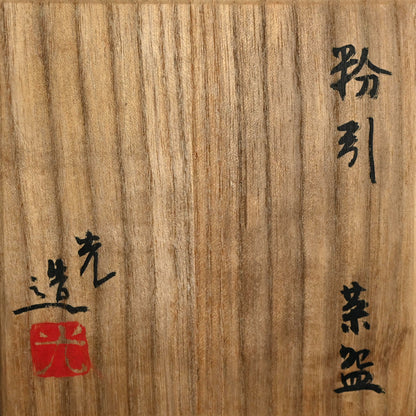 粉引 茶盌
光造
光